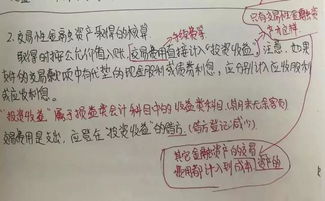 只有交易性金融资产
才这样
2.交易性金融资产取得的核算
手续费等
取得时按公允价值入账,交易费用直接计入"投资收益"。注意,如果
支付的交易款项中有代垫的现金股利或债券利息,应分别计入应收股利
或应收利息。
"投资收益"属于损益类会计科目中的收益类科目。(期末无余额)
交易费用是支出,应登在"投资收益"的借方。(借方登记减少)
其它金融资产的交易
费用都计入到成本
资产的